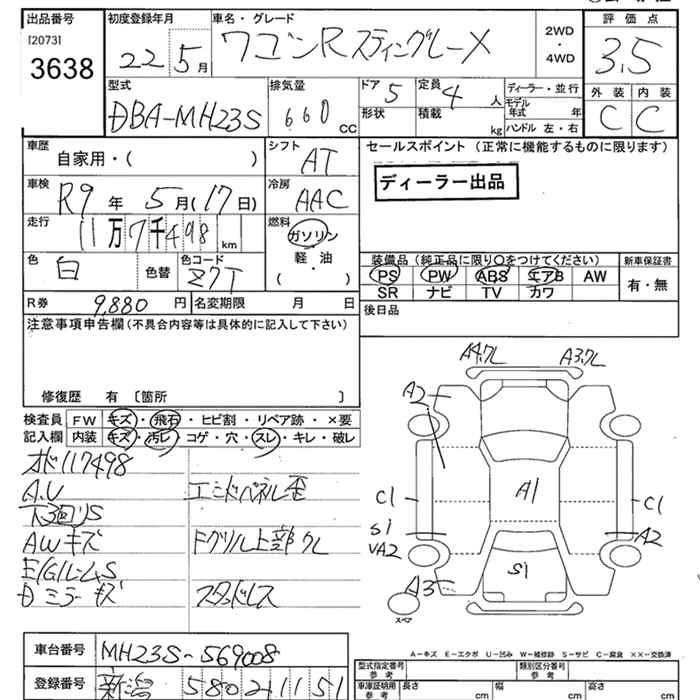 出品番号
[2073]
3638
初度登録年月
22 5月
車名・グレード
ワゴンR スティングレーX
2WD
・
4WD
評価点
3.5
外装 内装
C C
型式
DBA-MH23S
排気量
660 CC
ドア 5
形状
定員 4 人
積載 kg
ディーラー・並行
モデル年式 年
ハンドル 左・右
車歴
自家用・( )
シフト
AT
セールスポイント (正常に機能するものに限ります)
ディーラー出品
車検
R9年 5月(17日)
冷房
AAC
走行
11万7千498 km
燃料
ガソリン
軽・油
( )
色
白
色替
色コード
Z7T
装備品 (純正品に限り○をつけてください)
新車保証書
PS PW ABS エアB AW
SR ナビ TV カワ
有・無
R券 9,880 円
名変期限 月 日
後日品
注意事項申告欄 (不具合内容等は具体的に記入して下さい)
修復歴 有 〔箇所 〕
検査員 FW キズ・飛石・ヒビ割・リペア跡・×要
記入欄 内装 キズ・汚レ・コゲ・穴・スレ・キレ・破レ
オド117498
A.U
エンドパネル歪
下廻りS
AWキズ
Fグリル上部ワレ
E/GルームS
Dミラーキズ
スタッドレス
A4.ワレ
A3.ワレ
A2
C1
A1
C1
S1
VA2
A2
A3
S1
スペア
A-キズ E-エクボ U-凹み W-補修跡 S-サビ C-腐食 ××-交換済
車台番号
MH23S-569008
登録番号
新潟 580 2 1151
型式指定番号
参考
類別区分番号
参考
車庫証明用
参考
長さ cm
幅 cm
高さ cm